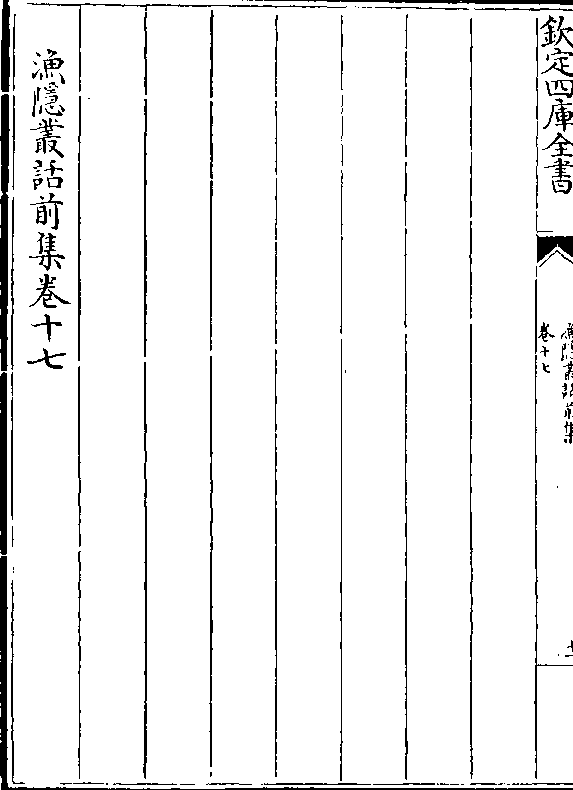 欽定四庫全書
漁隱叢話前集
卷十七
漁隱叢話前集卷十七